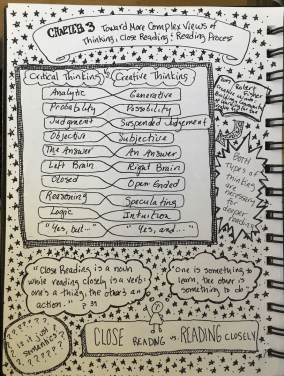 CHAPTER 3 Toward More Complex Views of
Thinking, Close Reading & Reading Process
Critical Thinking vs Creative Thinking
Analytic Generative
Probability Possibility
Judgment Suspended Judgement
Objective Subjective
The Answer An Answer
Left Brain Right Brain
Closed Open Ended
Reasoning Speculating
Logic Intuition
"Yes, but..." "Yes, and..."
Both
types of
thinking
are
necessary
for
deeper
reading
"Close Reading is a noun
while reading closely is a verb:
one's a thing, the other's an
action." p 39
"One is something to
learn, the other is
something to do"
? ? ? ? ? ?
is it just
semantics?
? ? ? ? ? ?
CLOSE READING vs. READING CLOSELY